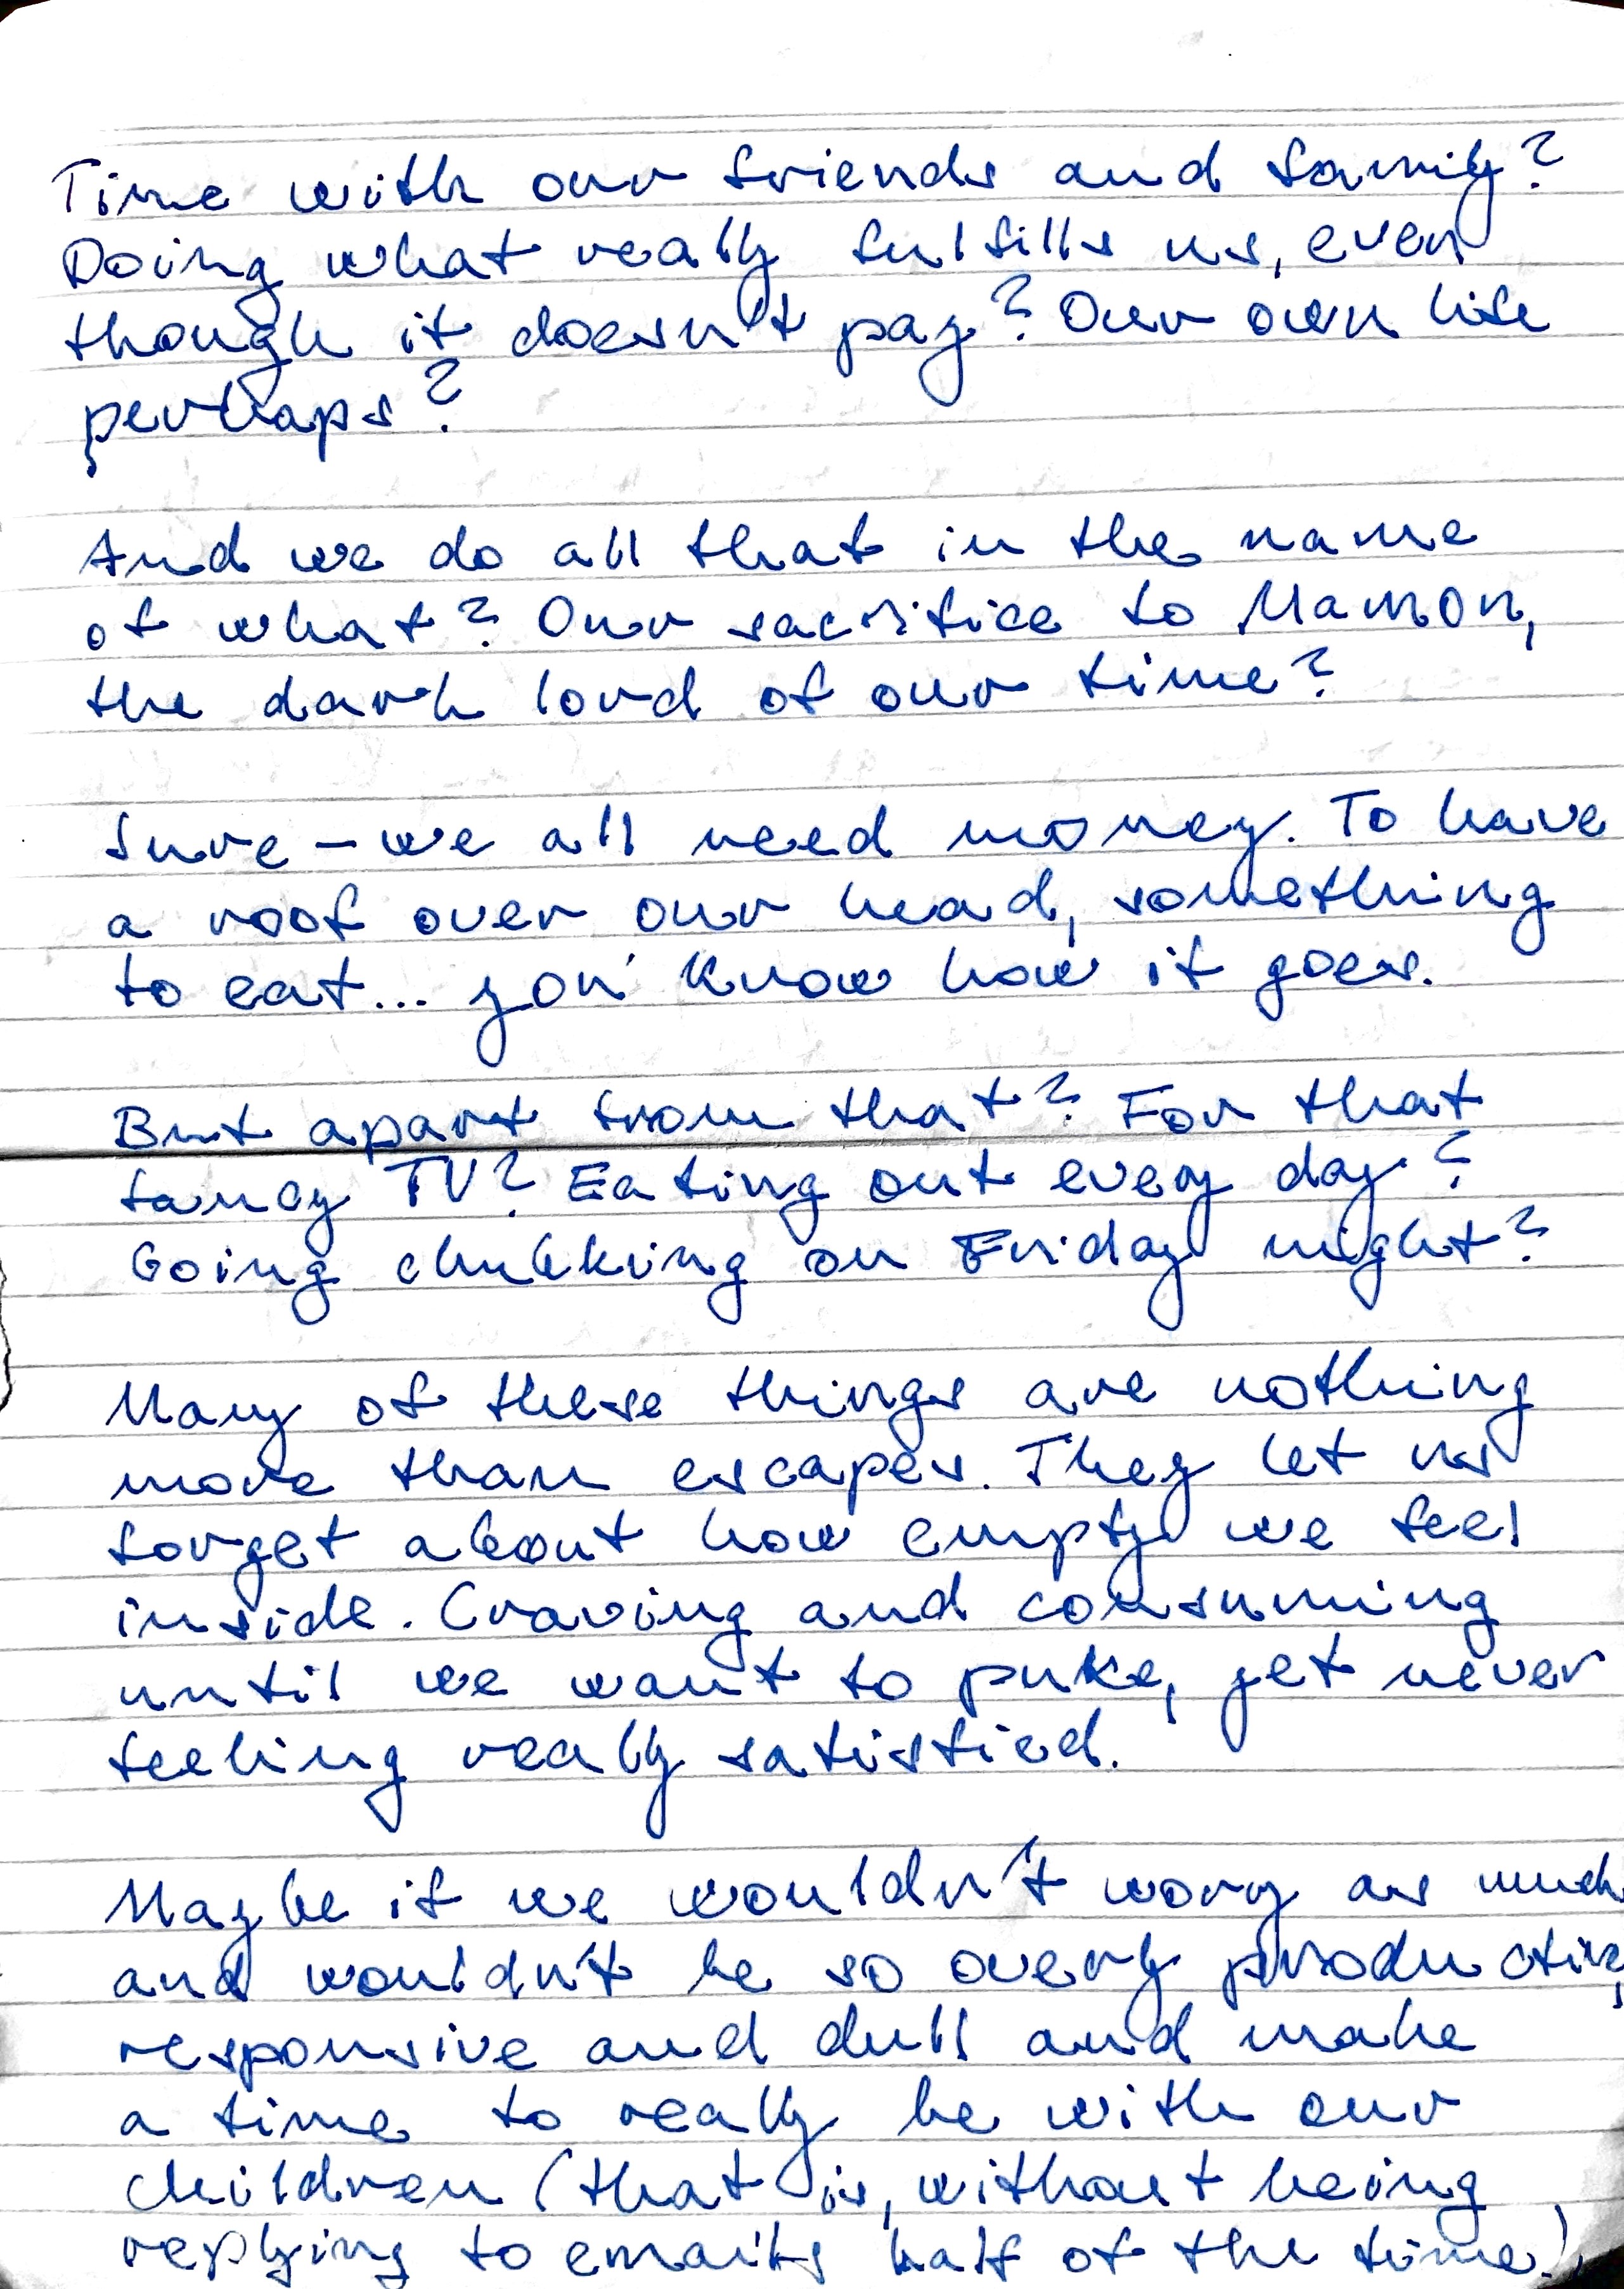 Time with our friends and family?
Doing what really fulfills us, even
though it doesn't pay? Our own life
perhaps?
And we do all that in the name
of what? Our sacrifice to Mamon,
the dark lord of our time?
Sure – we all need money. To have
a roof over our head, something
to eat... you know how it goes.
But apart from that? For that
fancy TV? Eating out every day?
Going clubbing on Friday night?
Many of these things are nothing
more than escapes. They let us
forget about how empty we feel
inside. Craving and consuming
until we want to puke, yet never
feeling really satisfied.
Maybe if we wouldn't worry as much
and wouldn't be so overly productive,
responsive and dull and make
a time to really be with our
children (that is, without being
replying to emails half of the time),